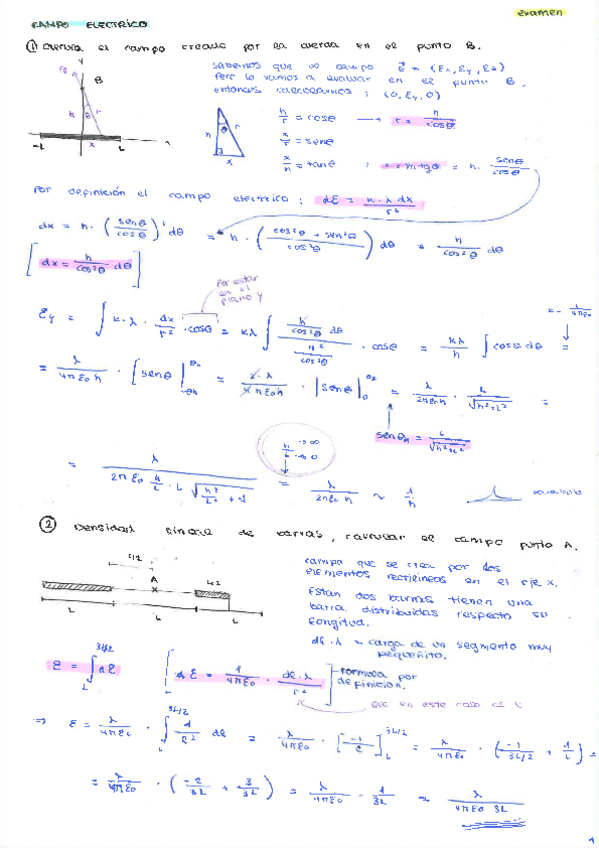 examen
CAMPO ELECTRICO
① Calcula el campo creado por la cuerda en el punto B.
Sabemos que un campo E = (Ex, Ey, Ez)
Pero lo vamos a evaluar en el punto B,
entonces calcularemos: (0, Ey, 0)
y
B
h
θ
r
x
-L
L
h/r = cosθ → r = h/cosθ
x/r = senθ
x/h = tanθ ; x = h·tgθ = h · senθ/cosθ
Por definición el campo electrico: dE = k·λ dx / r²
dx = h · (senθ/cosθ)' dθ = h · (cos²θ + sen²θ / cos²θ) dθ = h/cos²θ dθ
[dx = h/cos²θ dθ]
Por estar en el plano y
k = 1/4πε0
Ey = ∫ k·λ · dx/r² · cosθ = kλ ∫ (h/cos²θ dθ) / (h²/cos²θ) · cosθ = kλ/h ∫ cosθ dθ =
= λ/4πε0 h · [senθ] = 2·λ/4πε0 h · |senθ| = λ/2πε0 h · L/√h²+L² =
senθ = L/√h²+L²
= λ / 2πε0 h/L · L √h²/L² + 1 = λ/2πε0 h ~ 1/h
② Densidad lineal de barras, calcular el campo punto A.
L/2
A
L
L
L
campo que se crea por dos
elementos rectilineos en el eje x.
Estan dos barras tienen una
barra, distribuidas respecto su
longitud.
dl·λ = carga de un segmento muy
pequeñito.
E = ∫ dE
3L/2
L
dE = 1/4πε0 · dl·λ/r²
formula por
definicion.
que en este caso es l
⇒ E = λ/4πε0 · ∫ 1/l² dl = λ/4πε0 · [-1/l] = λ/4πε0 · (-1/3L/2 + 1/L) =
= λ/4πε0 · (-2/3L + 3/3L) = λ/4πε0 · 1/3L = λ/4πε0 3L